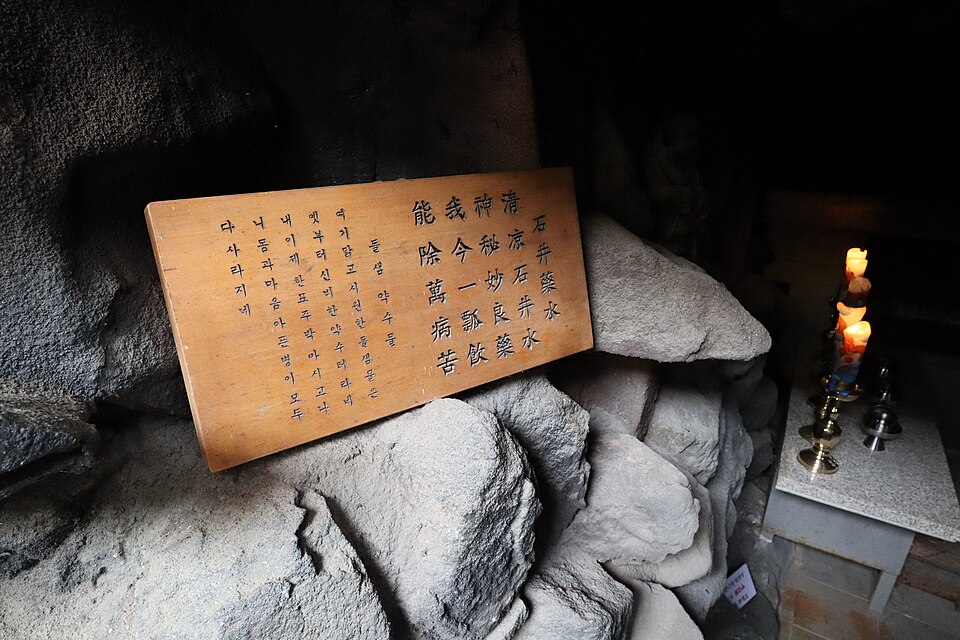 石井藥水
清凉石井水
神秘妙良藥
我今一瓢飮
能除萬病苦
돌샘 약수물
여기맑고시원한돌샘물은
옛부터신비한약수터라네
내이제한표주박마시고나
니몸과마음아픈병이모두
다사라지네